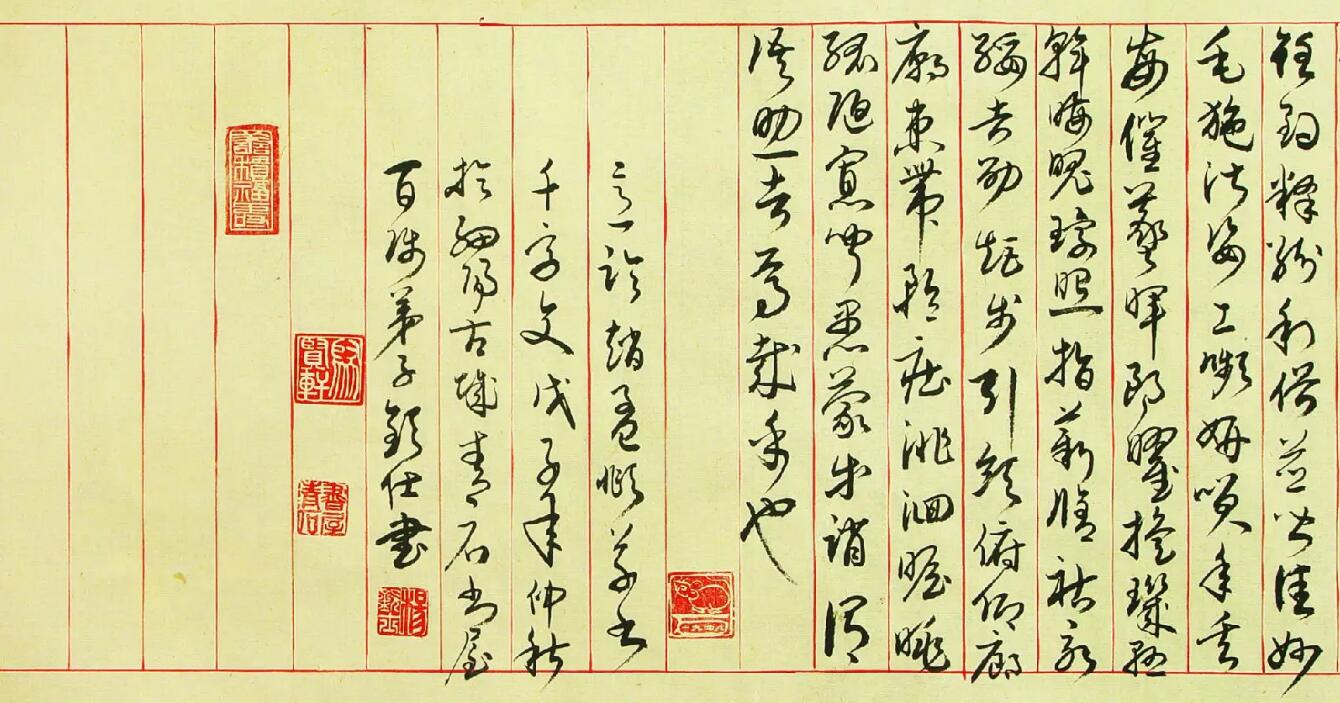 任釣釋紛利俗並皆佳妙
毛施淑姿工顰妍笑年矢
每催羲暉朗曜璣懸
斡晦魄環照指薪修祜永
綏吉劭矩步引領俯仰廊
廟束帶矜莊徘徊瞻眺
孤陋寡聞愚蒙等誚謂
語助者焉哉乎也
臨趙孟頫草書
千字文戊子年仲秋
於細陽古城青石書屋
百師弟子仕書